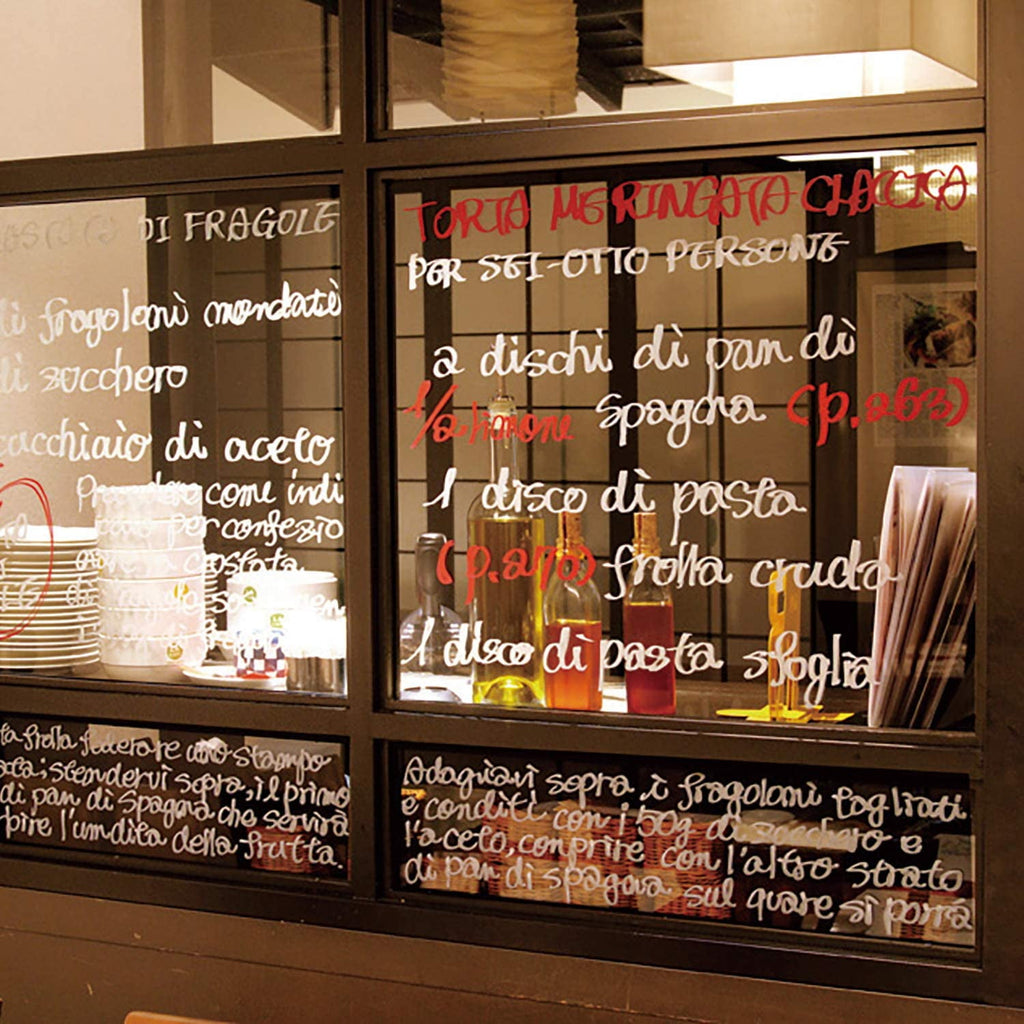 DI FRAGOLE
di fragoloni mondati
di zucchero
cucchiaio di aceto
come indi
per confezio
crostata
TORTA MERINGATA CLACCICA
PER SEI-OTTO PERSONE
2 dischi di pan di
1/2 limone spagna (p.263)
1 disco di pasta
(p.270) frolla cruda
1 disco di pasta sfoglia
ta frolla foderare uno stampo
stendervi sopra, il primo
di pan di spagna che servirà
l'umdita della frutta.
Adagiavi sopra, i fragoloni tagliati
e conditi con i 50g di zucchero e
l'aceto, conprire con l'altro strato
di pan di spagna sul quare si porrà